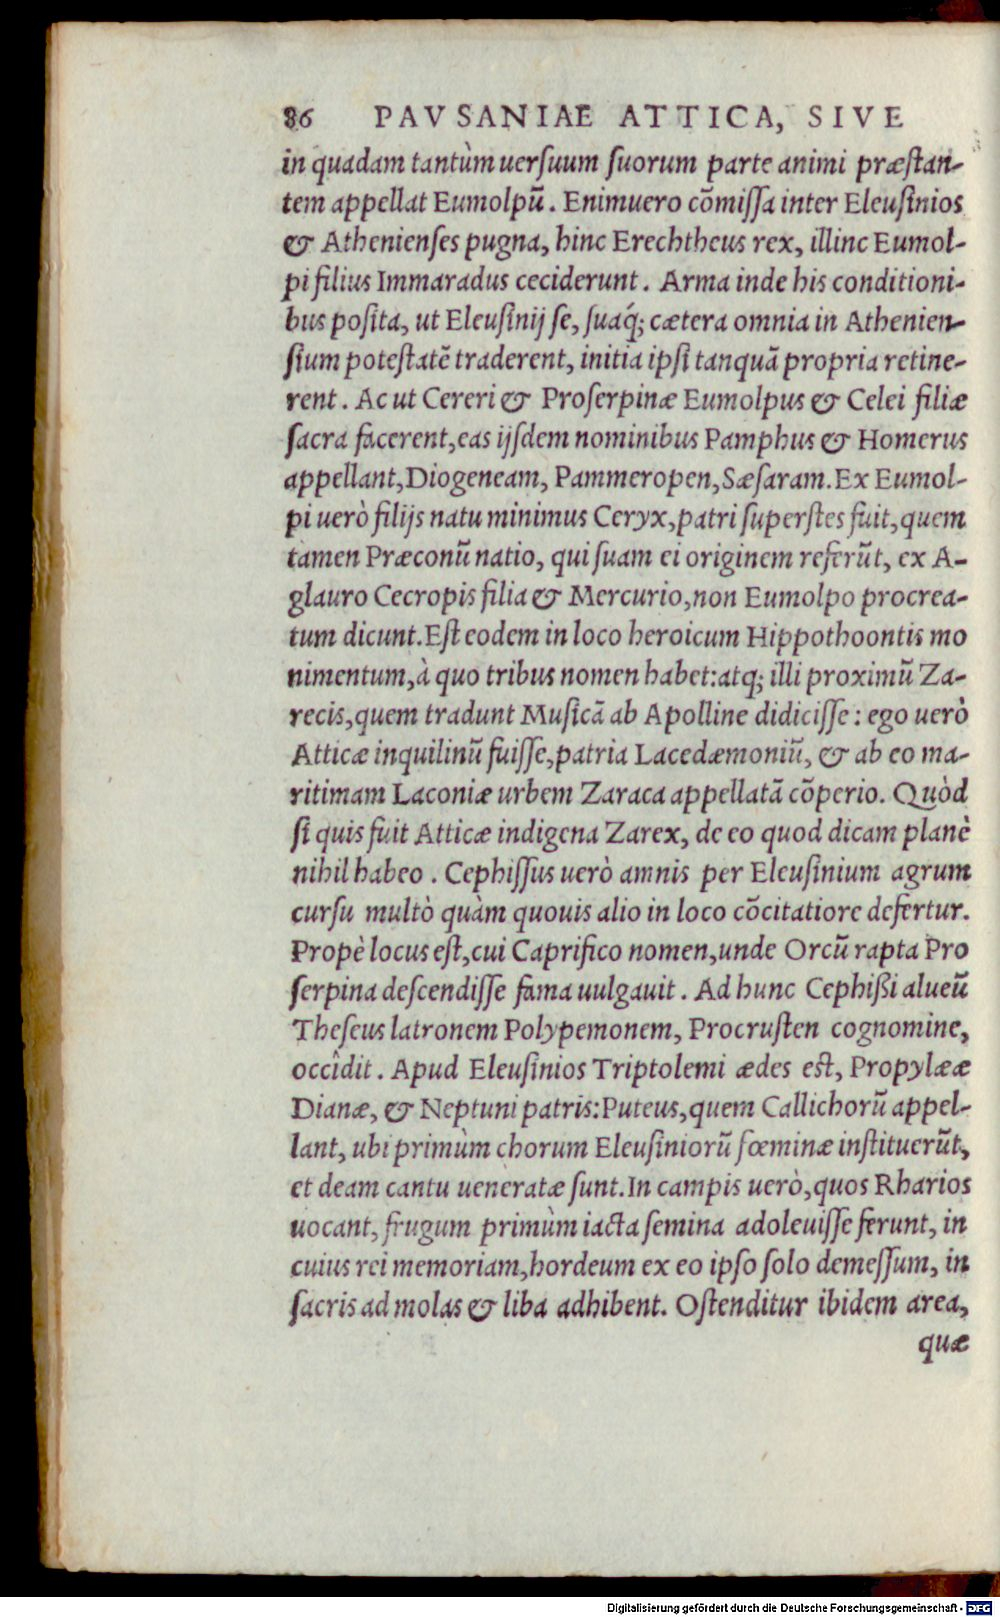 86 PAVSANIAE ATTICA, SIVE
in quadam tantùm uersuum suorum parte animi præstan-
tem appellat Eumolpū. Enimuero cōmissa inter Eleusinios
& Athenienses pugna, hinc Erechtheus rex, illinc Eumol-
pi filius Immaradus ceciderunt. Arma inde his conditioni-
bus posita, ut Eleusinij se, suaq́; cætera omnia in Athenien-
sium potestatē traderent, initia ipsi tanquā propria retine-
rent. Ac ut Cereri & Proserpinæ Eumolpus & Celei filiæ
sacra facerent, eas ijsdem nominibus Pamphus & Homerus
appellant, Diogeneam, Pammeropen, Sæsaram. Ex Eumol-
pi uerò filijs natu minimus Ceryx, patri superstes fuit, quem
tamen Præconū natio, qui suam ei originem referūt, ex A-
glauro Cecropis filia & Mercurio, non Eumolpo procrea-
tum dicunt. Est eodem in loco heroicum Hippothoontis mo
nimentum, à quo tribus nomen habet: atq; illi proximū Za-
recis, quem tradunt Musicā ab Apolline didicisse: ego uerò
Atticæ inquilinū fuisse, patria Lacedæmoniū, & ab eo ma-
ritimam Laconiæ urbem Zaraca appellatā cōperio. Quòd
si quis fuit Atticæ indigena Zarex, de eo quod dicam planè
nihil habeo. Cephissus uerò amnis per Eleusinium agrum
cursu multò quàm quouis alio in loco cōcitatiore defertur.
Propè locus est, cui Caprifico nomen, unde Orcū rapta Pro
serpina descendisse fama uulgauit. Ad hunc Cephißi alueū
Theseus latronem Polypemonem, Procrusten cognomine,
occîdit. Apud Eleusinios Triptolemi ædes est, Propylææ
Dianæ, & Neptuni patris: Puteus, quem Callichorū appel-
lant, ubi primùm chorum Eleusiniorū fœminæ instituerūt,
et deam cantu ueneratæ sunt. In campis uerò, quos Rharios
uocant, frugum primùm iacta semina adoleuisse ferunt, in
cuius rei memoriam, hordeum ex eo ipso solo demessum, in
sacris ad molas & liba adhibent. Ostenditur ibidem area,
quæ
Digitalisierung gefördert durch die Deutsche Forschungsgemeinschaft - DFG